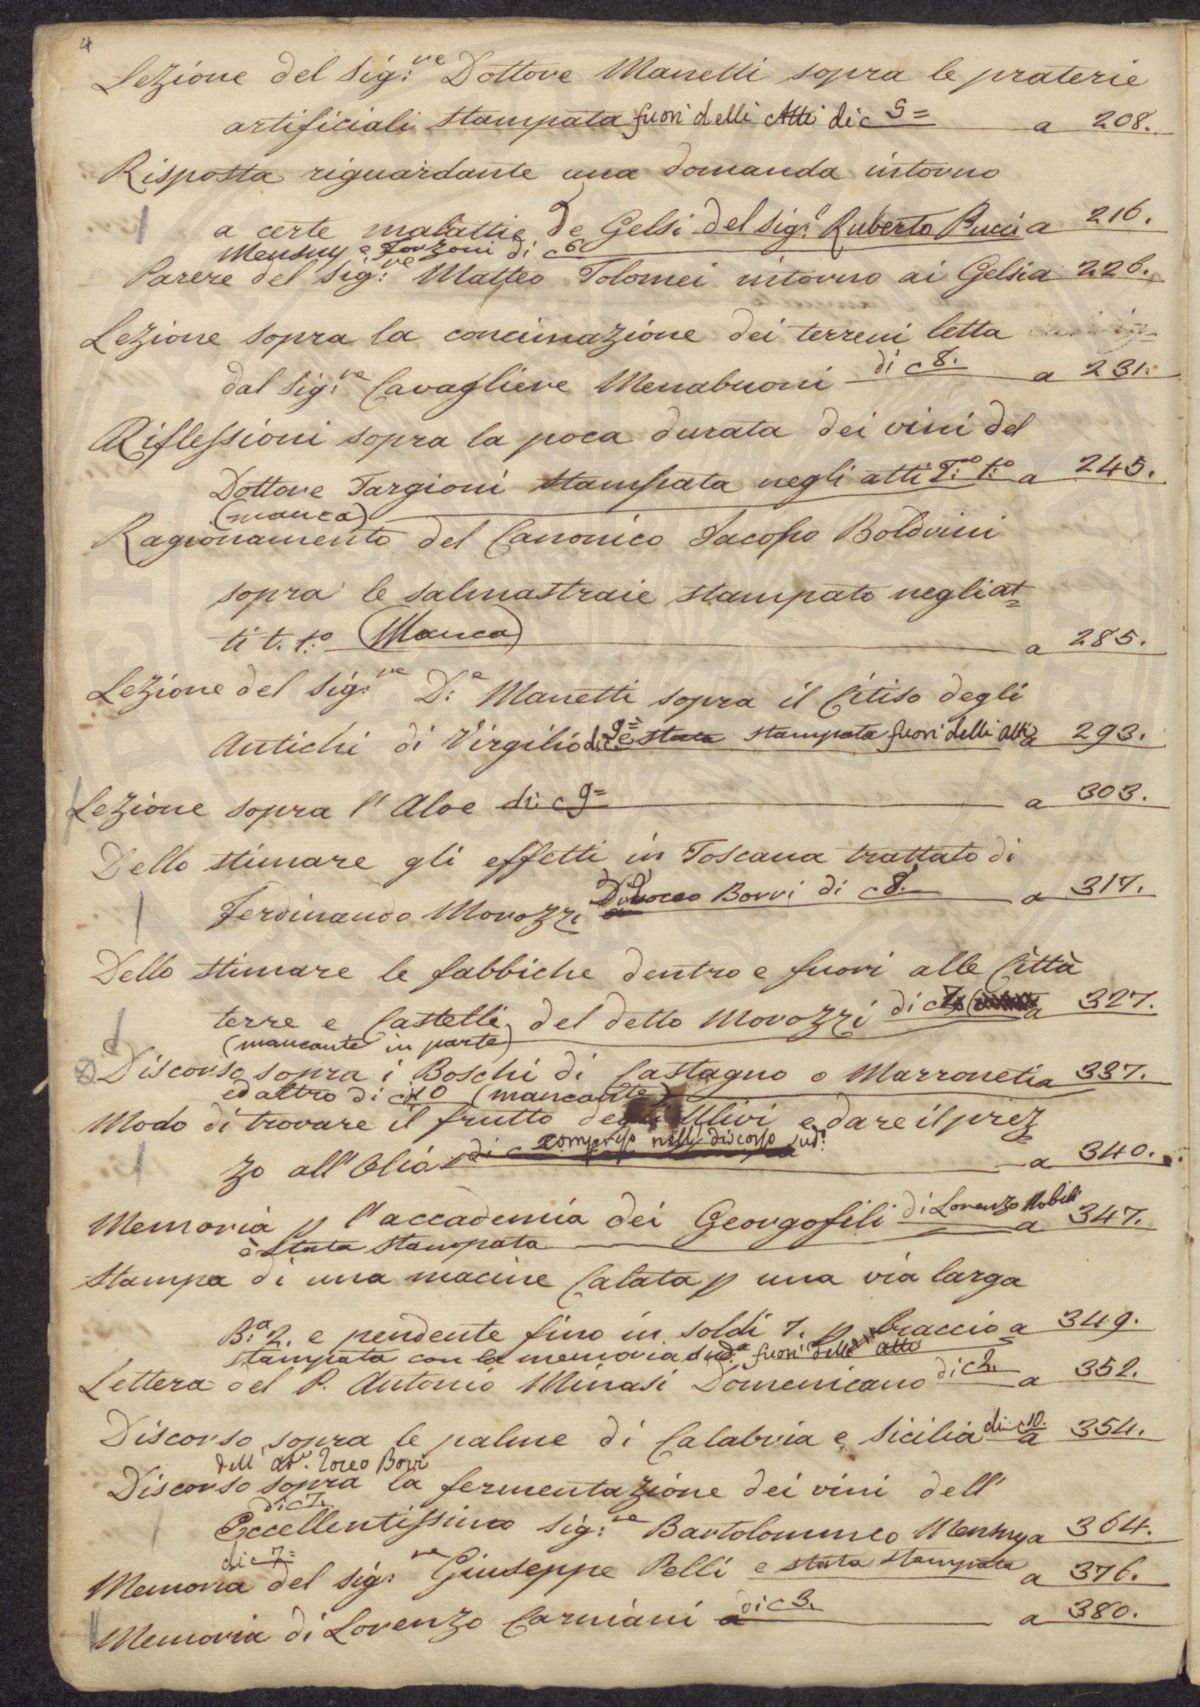 4
Lezione del Sig:re Dottore Manetti sopra le praterie
artificiali stampata fuori delli Atti di c 5= a 208.
Risposta riguardante una domanda intorno
a certe malattie de Gelsi del Sig:r Ruberto Pucci a 216.
Mensuy e Fonzoni di c 6
Parere del Sig:re Matteo Tolomei intorno ai Gelsi a 226.
Lezione sopra la concimazione dei terreni letta
dal Sig:re Cavagliere Menabuoni di c 8. a 231.
Riflessioni sopra la poca durata dei vini del
Dottore Targioni stampata negli atti T:o 1:o a 245.
(manca)
Ragionamento del Canonico Jacopo Boldrini
sopra le salmastraie stampato negli at=
ti t. 1:o (Manca) a 285.
Lezione del Sig:re D:e Manetti sopra il Citiso degli
Antichi di Virgilio di c 9= è stata stampata fuori delli atti a 293.
Lezione sopra l' Aloe di c 9= a 303.
Dello stimare gli effetti in Toscana trattato di
Ferdinando Morozzi Borri di c 8. a 317.
Dello stimare le fabbiche dentro e fuori alle Città
terre e Castelli del detto Morozzi di c a 327.
(mancante in parte)
Discorso sopra i Boschi di Castagno o Marroneti a 337.
ed altro di c 10 (mancante)
Modo di trovare il frutto degli Ulivi e dare il prez
zo all' Olio di c compreso nell discorso sud:o a 340.
Memoria p l'accademia dei Georgofili di Lorenzo Nobili a 347.
è stata stampata
Stampa di una macine Calata p una via larga
B:a 2. e pendente fino in soldi 7. p braccio a 349.
stampata con la memoria sud:a fuori delli atti
Lettera del P. Antonio Minasi Domenicano di c 2. a 352.
Discorso sopra le palme di Calabria e Sicilia di c 10. a 354.
dell' ab:e Zoreo Borri
Discorso sopra la fermentazione dei vini dell'
di c 7.
Eccellentissimo Sig:re Bartolommeo Mensuy a 364.
di c 7=
Memoria del Sig:re Giuseppe Pelli e stata stampata a 376.
Memoria di Lorenzo Carniani di c 3. a 380.